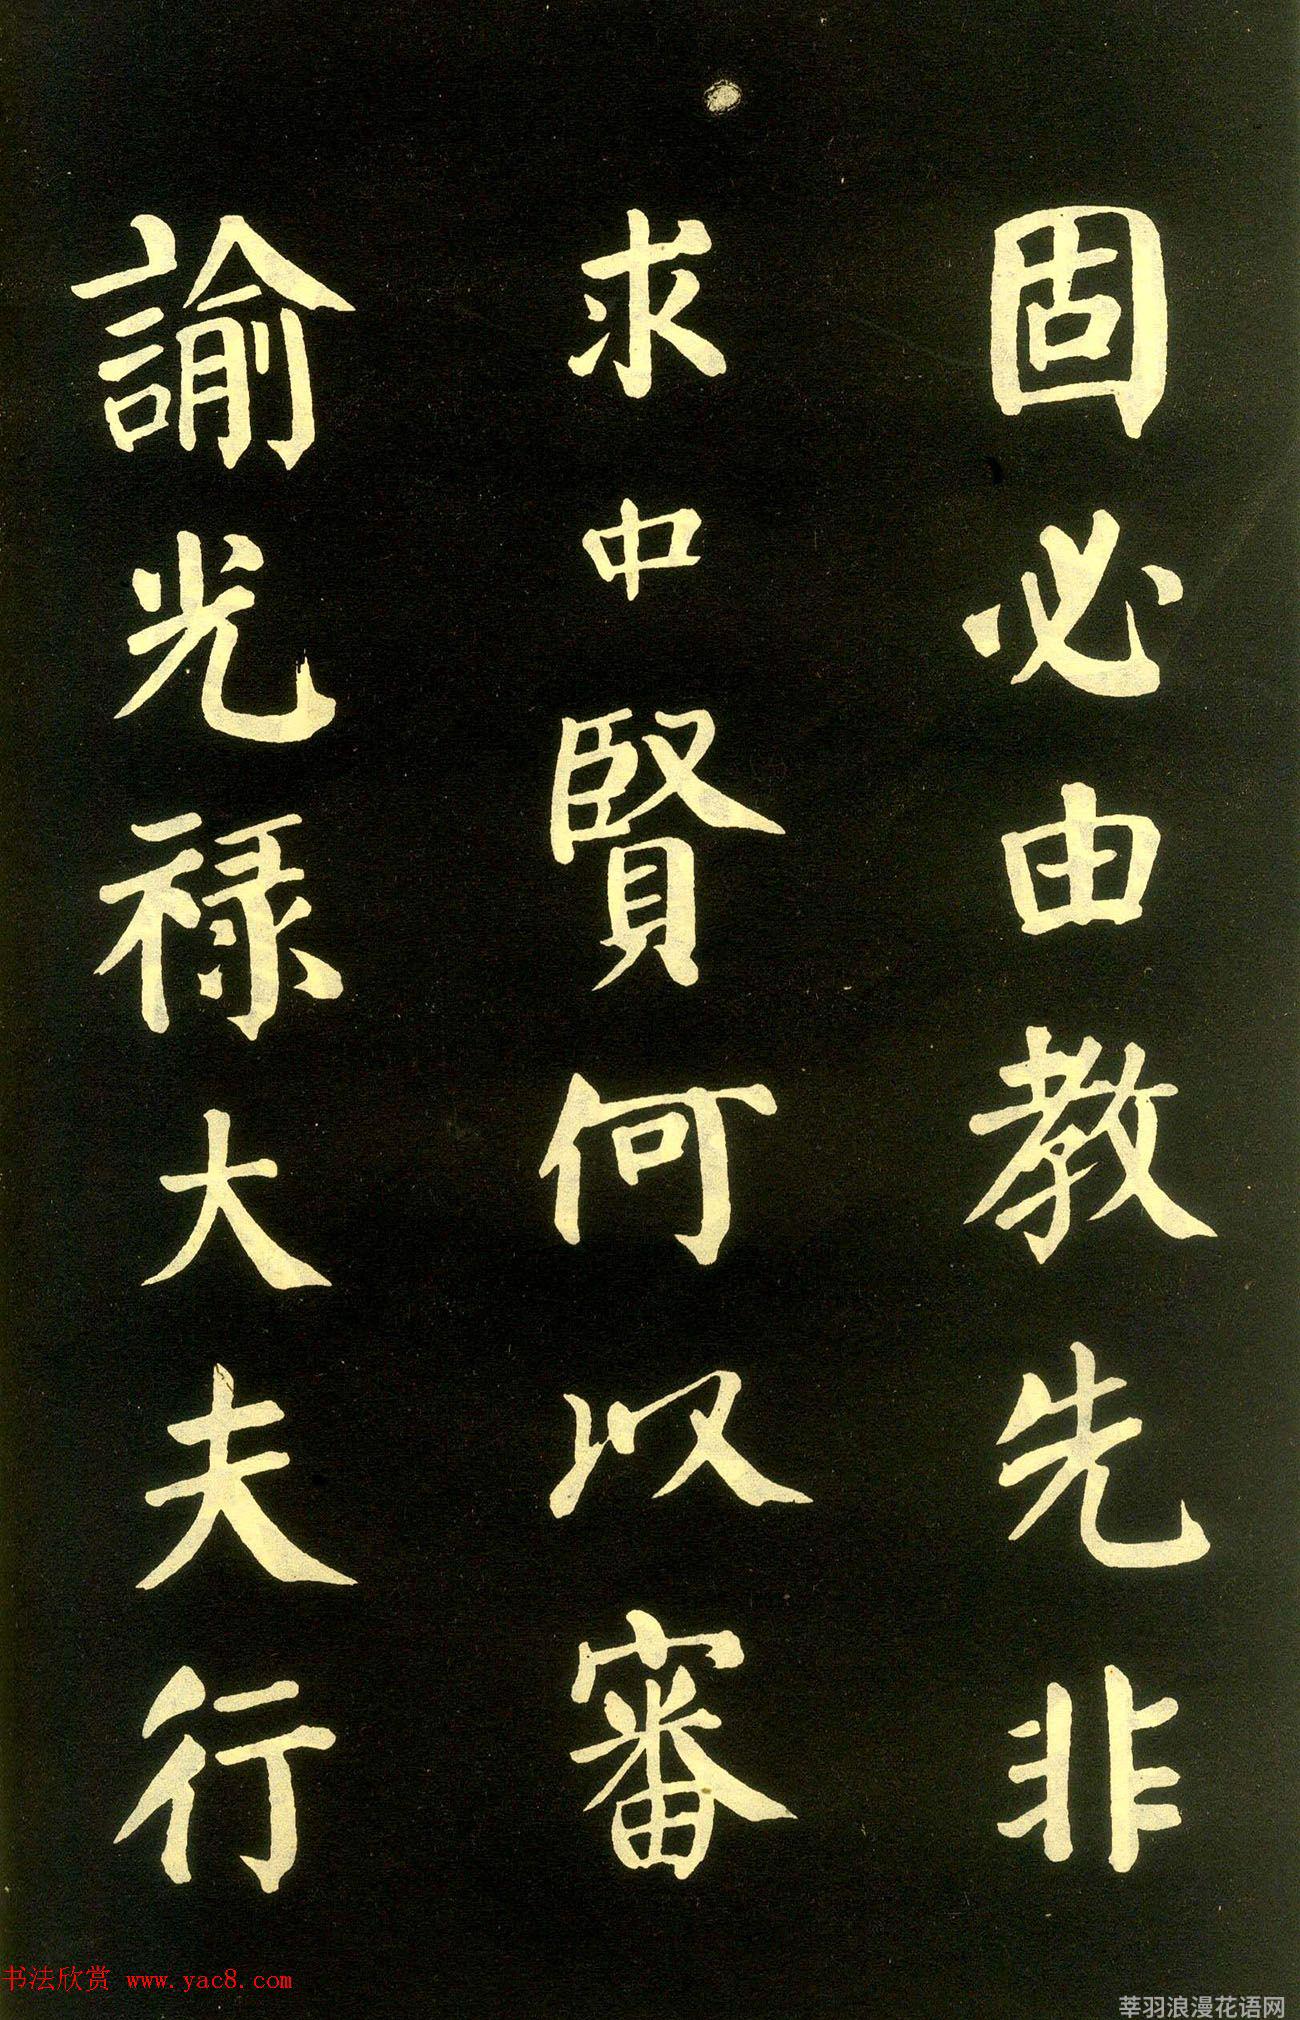 固必由教先非
求中賢何以審
諭光禄大夫行
书法欣赏 www.yac8.com
莘羽浪漫花语网